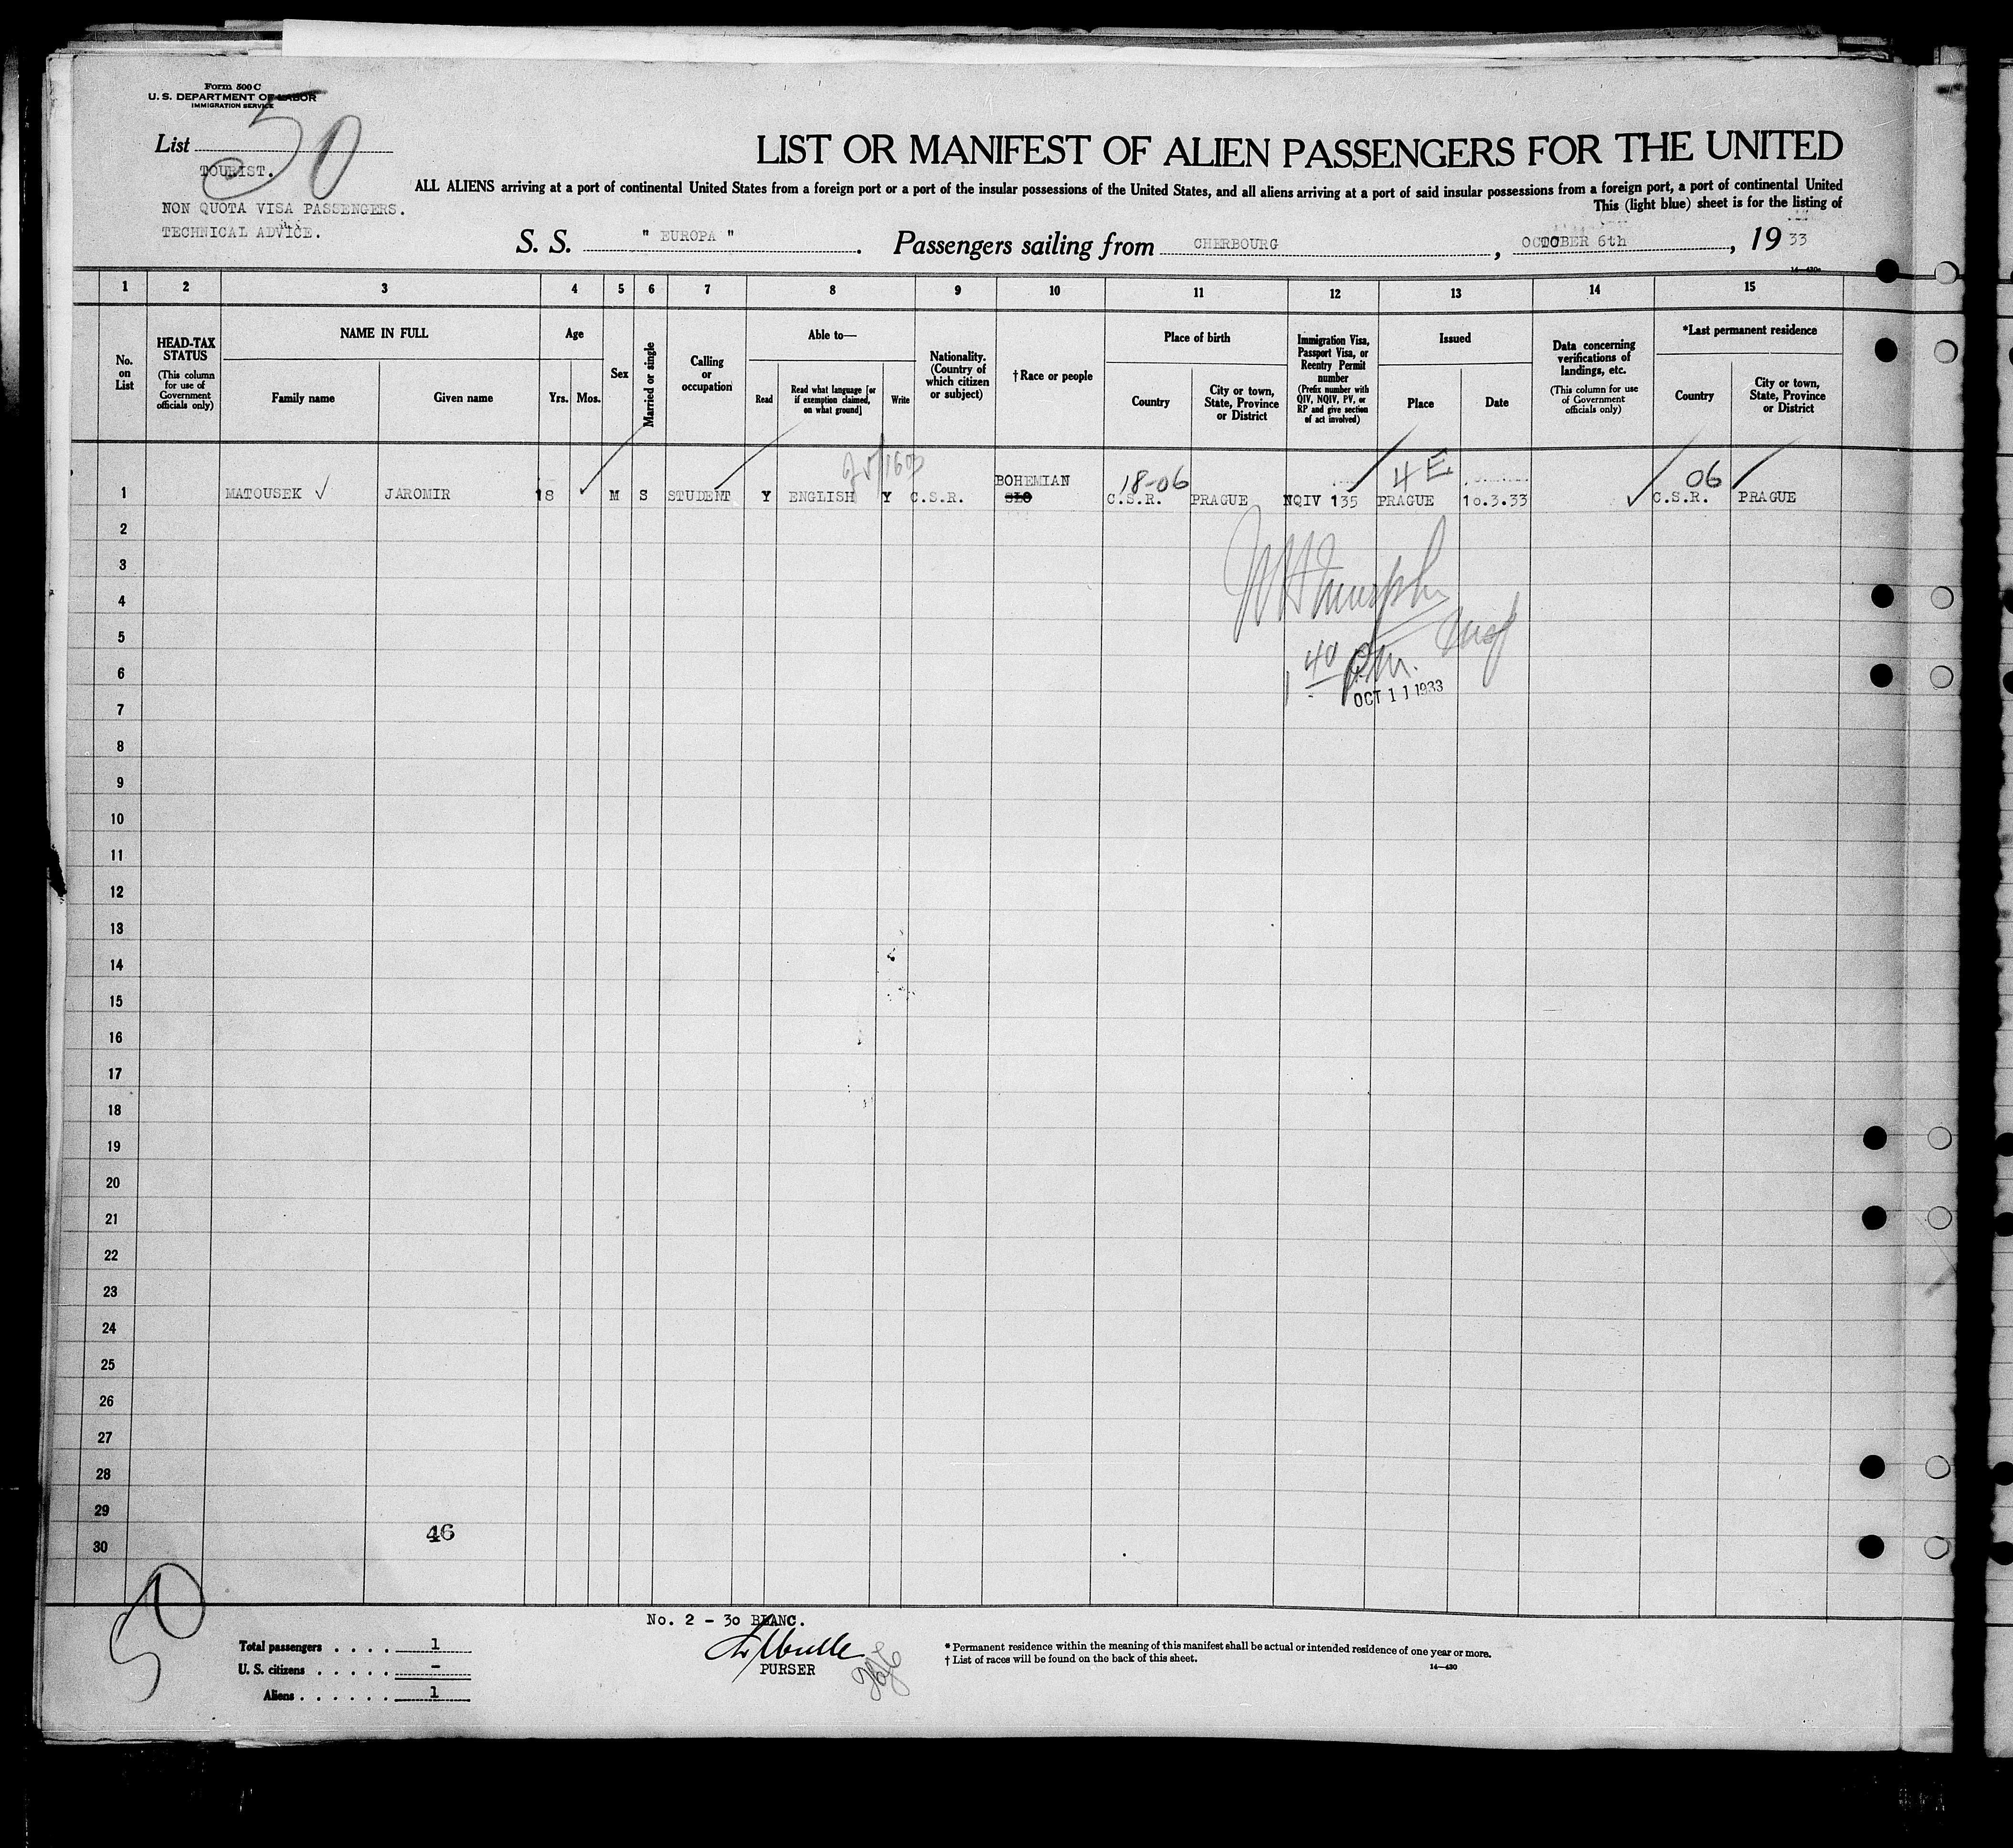 Form 500 C
U. S. DEPARTMENT OF LABOR
IMMIGRATION SERVICE
List 50
TOURIST.
NON QUOTA VISA PASSENGERS.
TECHNICAL ADVICE.
LIST OR MANIFEST OF ALIEN PASSENGERS FOR THE UNITED
ALL ALIENS arriving at a port of continental United States from a foreign port or a port of the insular possessions of the United States, and all aliens arriving at a port of said insular possessions from a foreign port, a port of continental United
This (light blue) sheet is for the listing of
S. S. " EUROPA ". Passengers sailing from CHERBOURG, OCTOBER 6th, 19 33
14—430c
1 2 3 4 5 6 7 8 9 10 11 12 13 14 15
No. on List
HEAD-TAX STATUS
(This column for use of Government officials only)
NAME IN FULL
Family name
Given name
Age
Yrs.
Mos.
Sex
Married or single
Calling or occupation
Able to—
Read
Read what language [or if exemption claimed, on what ground]
Write
Nationality. (Country of which citizen or subject)
†Race or people
Place of birth
Country
City or town, State, Province or District
Immigration Visa, Passport Visa, or Reentry Permit number
(Prefix number with QIV, NQIV, PV, or RP and give section of act involved)
Issued
Place
Date
Data concerning verifications of landings, etc.
(This column for use of Government officials only)
*Last permanent residence
Country
City or town, State, Province or District
18-06 4 E 06
BOHEMIAN
1 MATOUSEK ✓ JAROMIR 18 ✓ M S STUDENT Y ENGLISH Y C.S.R. SLO C.S.R. PRAGUE NQIV 135 PRAGUE 10.3.33 ✓ C.S.R. PRAGUE
2
3
4
5
6
1 40 P.M.
OCT 11 1933
7
8
9
10
11
12
13
14
15
16
17
18
19
20
21
22
23
24
25
26
27
28
29
46
30
50
No. 2 - 30 BLANC.
PURSER
Total passengers . . . . 1
U. S. citizens . . . . . –
Aliens . . . . . . 1
* Permanent residence within the meaning of this manifest shall be actual or intended residence of one year or more.
† List of races will be found on the back of this sheet.
14—430